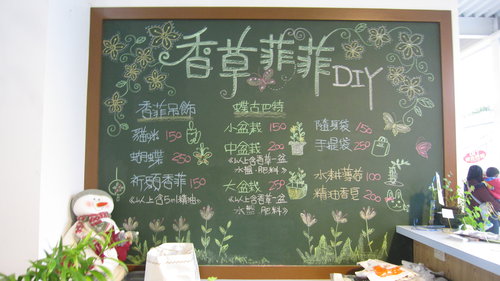 香草菲菲 DIY
香菲吊飾
貓咪 150
蝴蝶 250
祈願香菲 150
《以上含5ml精油》
蝶古巴特
小盆栽 150
中盆栽 200
《以上含香草一盆
水盤、肥料》
大盆栽 250
《以上含香草一盆
水盤 肥料》
隨身袋 150
手提袋 250
水耕蕃茄 100
精油香皂 200